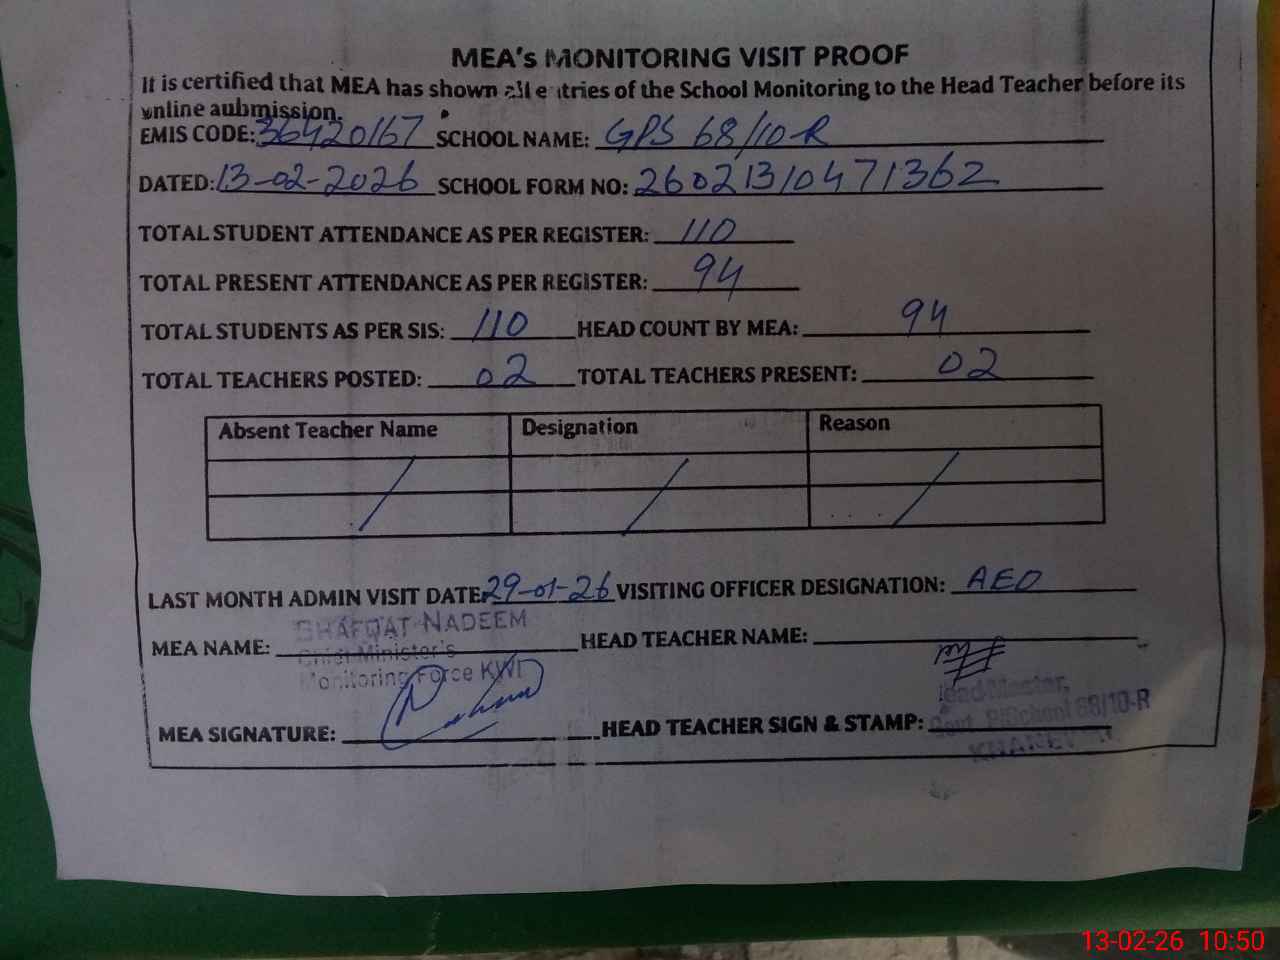 MEA's MONITORING VISIT PROOF
It is certified that MEA has shown all entries of the School Monitoring to the Head Teacher before its
online aubmission.
EMIS CODE: 36420167 SCHOOL NAME: GPS 68/10-R
DATED: 13-02-2026 SCHOOL FORM NO: 26021310471362
TOTAL STUDENT ATTENDANCE AS PER REGISTER: 110
TOTAL PRESENT ATTENDANCE AS PER REGISTER: 94
TOTAL STUDENTS AS PER SIS: 110 HEAD COUNT BY MEA: 94
TOTAL TEACHERS POSTED: 02 TOTAL TEACHERS PRESENT: 02
Absent Teacher Name Designation Reason
LAST MONTH ADMIN VISIT DATE: 29-01-26 VISITING OFFICER DESIGNATION: AEO
MEA NAME: SHAFQAT NADEEM HEAD TEACHER NAME:
Chief Minister's
Monitoring Force KWL
Head Master,
MEA SIGNATURE: HEAD TEACHER SIGN & STAMP: Govt. P/School 68/10-R
KHANEWAL
13-02-26 10:50